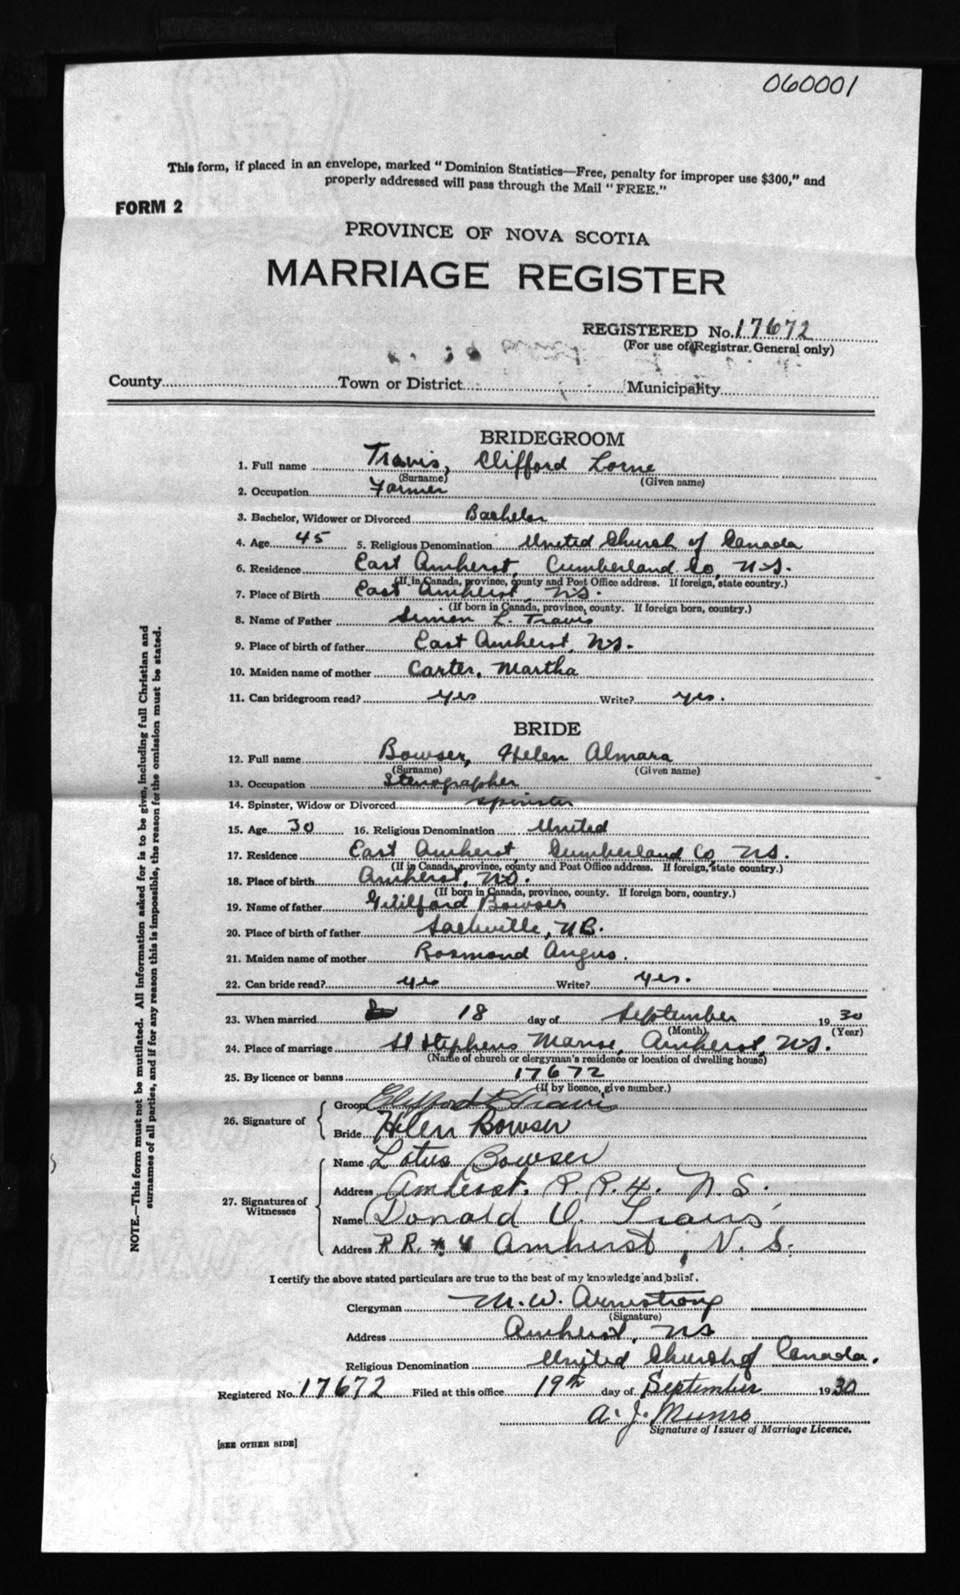 060001
This form, if placed in an envelope, marked "Dominion Statistics—Free, penalty for improper use $300," and
properly addressed will pass through the Mail "FREE."
FORM 2
PROVINCE OF NOVA SCOTIA
MARRIAGE REGISTER
REGISTERED No. 17672
(For use of Registrar General only)
County Town or District Municipality
BRIDEGROOM
1. Full name Travis, Clifford Lorne
(Surname) (Given name)
2. Occupation Farmer
3. Bachelor, Widower or Divorced Bachelor
4. Age 45 5. Religious Denomination United Church of Canada
6. Residence East Amherst, Cumberland Co, N.S.
(If in Canada, province, county and Post Office address. If foreign, state country.)
7. Place of Birth East Amherst, N.S.
(If born in Canada, province, county. If foreign born, country.)
8. Name of Father Simon L. Travis
9. Place of birth of father East Amherst, N.S.
10. Maiden name of mother Carter, Martha
11. Can bridegroom read? yes Write? yes.
BRIDE
12. Full name Bowser, Helen Almara
(Surname) (Given name)
13. Occupation Stenographer
14. Spinster, Widow or Divorced Spinster
15. Age 30 16. Religious Denomination United
17. Residence East Amherst Cumberland Co N.S.
(If in Canada, province, county and Post Office address. If foreign, state country.)
18. Place of birth Amherst, N.S.
(If born in Canada, province, county. If foreign born, country.)
19. Name of father Bowser
20. Place of birth of father Sackville, N.B.
21. Maiden name of mother Rosmond Angus.
22. Can bride read? yes Write? yes.
23. When married 18 day of September 1930
(Month) (Year)
24. Place of marriage St Stephens Manse, Amherst, N.S.
(Name of church or clergyman's residence or location of dwelling house)
25. By licence or banns 17672
(If by licence, give number.)
26. Signature of
Groom Clifford L Travis
Bride Helen Bowser
27. Signatures of Witnesses
Name Lotus Bowser
Address Amherst. R.R.4. N.S.
Name Donald O. Travis
Address R R. # 4 Amherst, N. S.
I certify the above stated particulars are true to the best of my knowledge and belief.
Clergyman M. W. Armstrong
(Signature)
Address Amherst, NS
Religious Denomination United Church of Canada.
Registered No. 17672 Filed at this office 19th day of September 1930
A. J. Munro
Signature of Issuer of Marriage Licence.
[SEE OTHER SIDE]
NOTE.—This form must not be mutilated. All information asked for is to be given, including full Christian and
surnames of all parties, and if for any reason this is impossible, the reason for the omission must be stated.